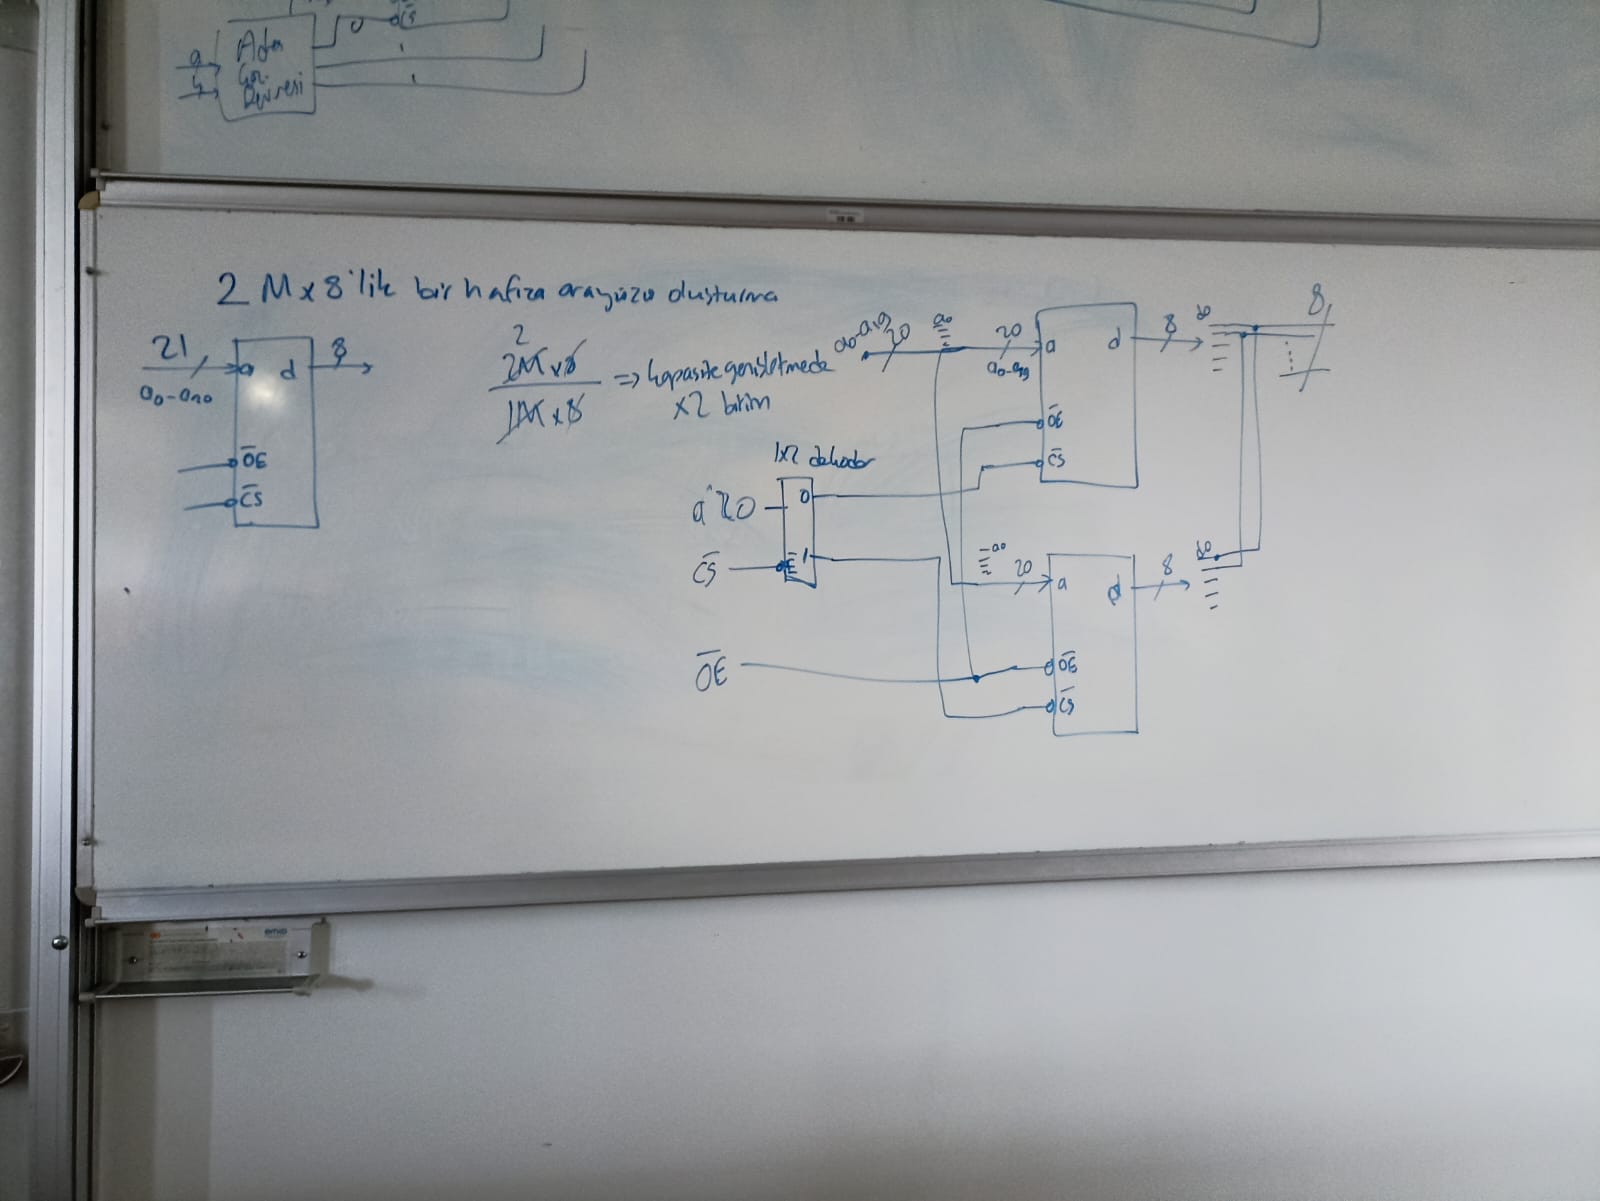 CS
0
a
Adr
1
Devresi
1
2 Mx8'lik bir hafıza arayüzü oluşturma
21
a d
8
a0-a20
OE
CS
2
2M x 8
1M x 8
=> kapasite genişletmede
x2 birim
a0-a19
20
a0
20
a0-a19
a d
8
d0
8
OE
CS
1x2 dekoder
a20
0
CS
E 1
a0
20
a d
8
d0
OE
OE
CS